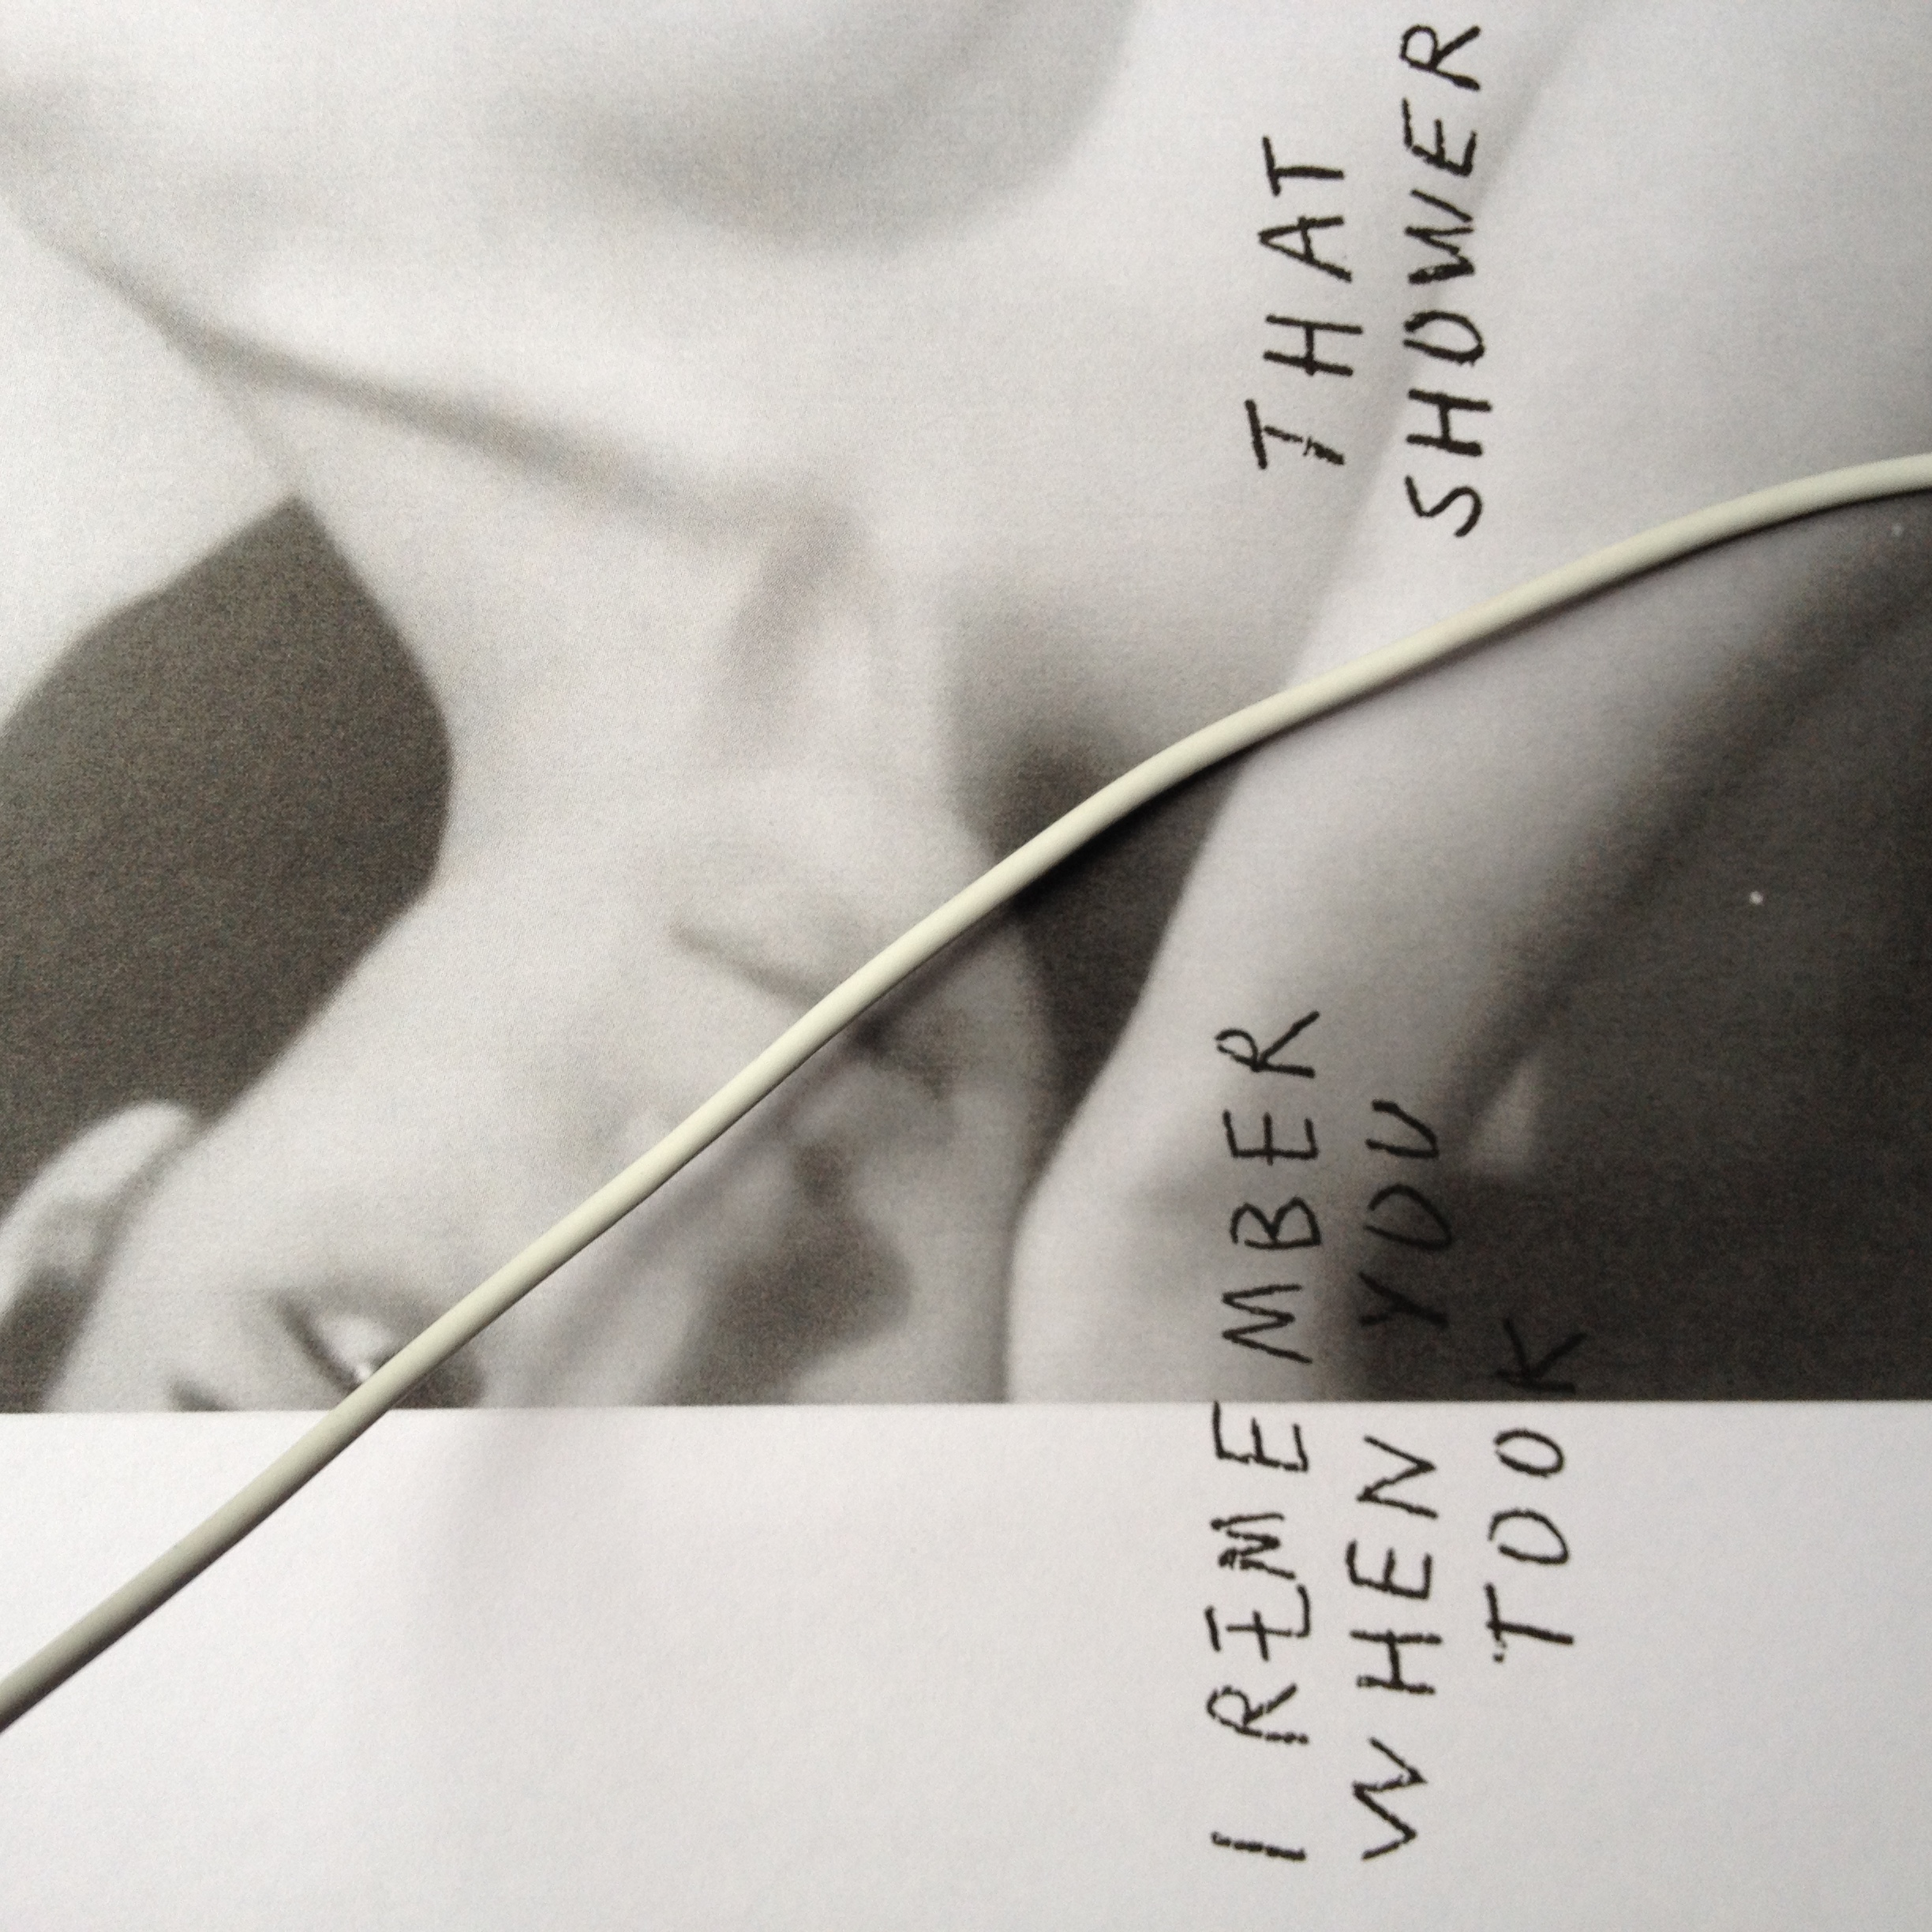 I REMEMBER
WHEN YOU
TOOK
THAT
SHOWER